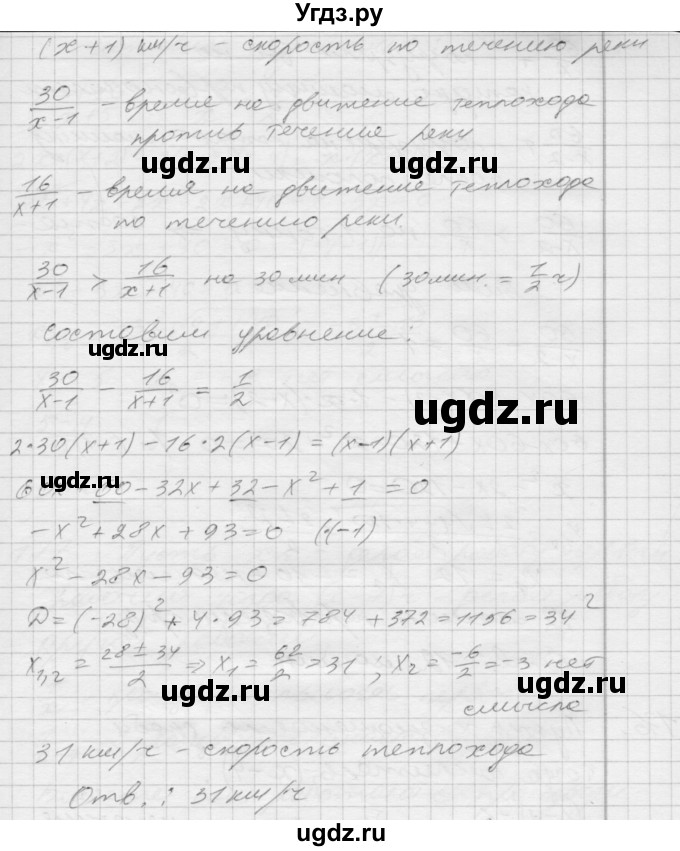 Угдз.ру
(x+1) км/ч - скорость по течению реки
30/(x-1) - время на движение теплохода
против течения реки
ugdz.ru ugdz.ru
16/(x+1) - время на движение теплохода
по течению реки.
30/(x-1) > 16/(x+1) на 30 мин (30 мин. = 1/2 ч)
Составим уравнение:
ugdz.ru ugdz.ru
30/(x-1) - 16/(x+1) = 1/2
ugdz.ru
2·30(x+1) - 16·2(x-1) = (x-1)(x+1)
60x + 60 - 32x + 32 - x² + 1 = 0
ugdz.ru
-x² + 28x + 93 = 0 (·(-1)
x² - 28x - 93 = 0
D = (-28)² + 4·93 = 784 + 372 = 1156 = 34²
x₁,₂ = (28 ± 34)/2 ⇒ x₁ = 62/2 = 31 ; x₂ = -6/2 = -3 нет
смысла
ugdz.ru ugdz.ru
31 км/ч - скорость теплохода
Отв.: 31 км/ч
ugdz.ru
ugdz.ru